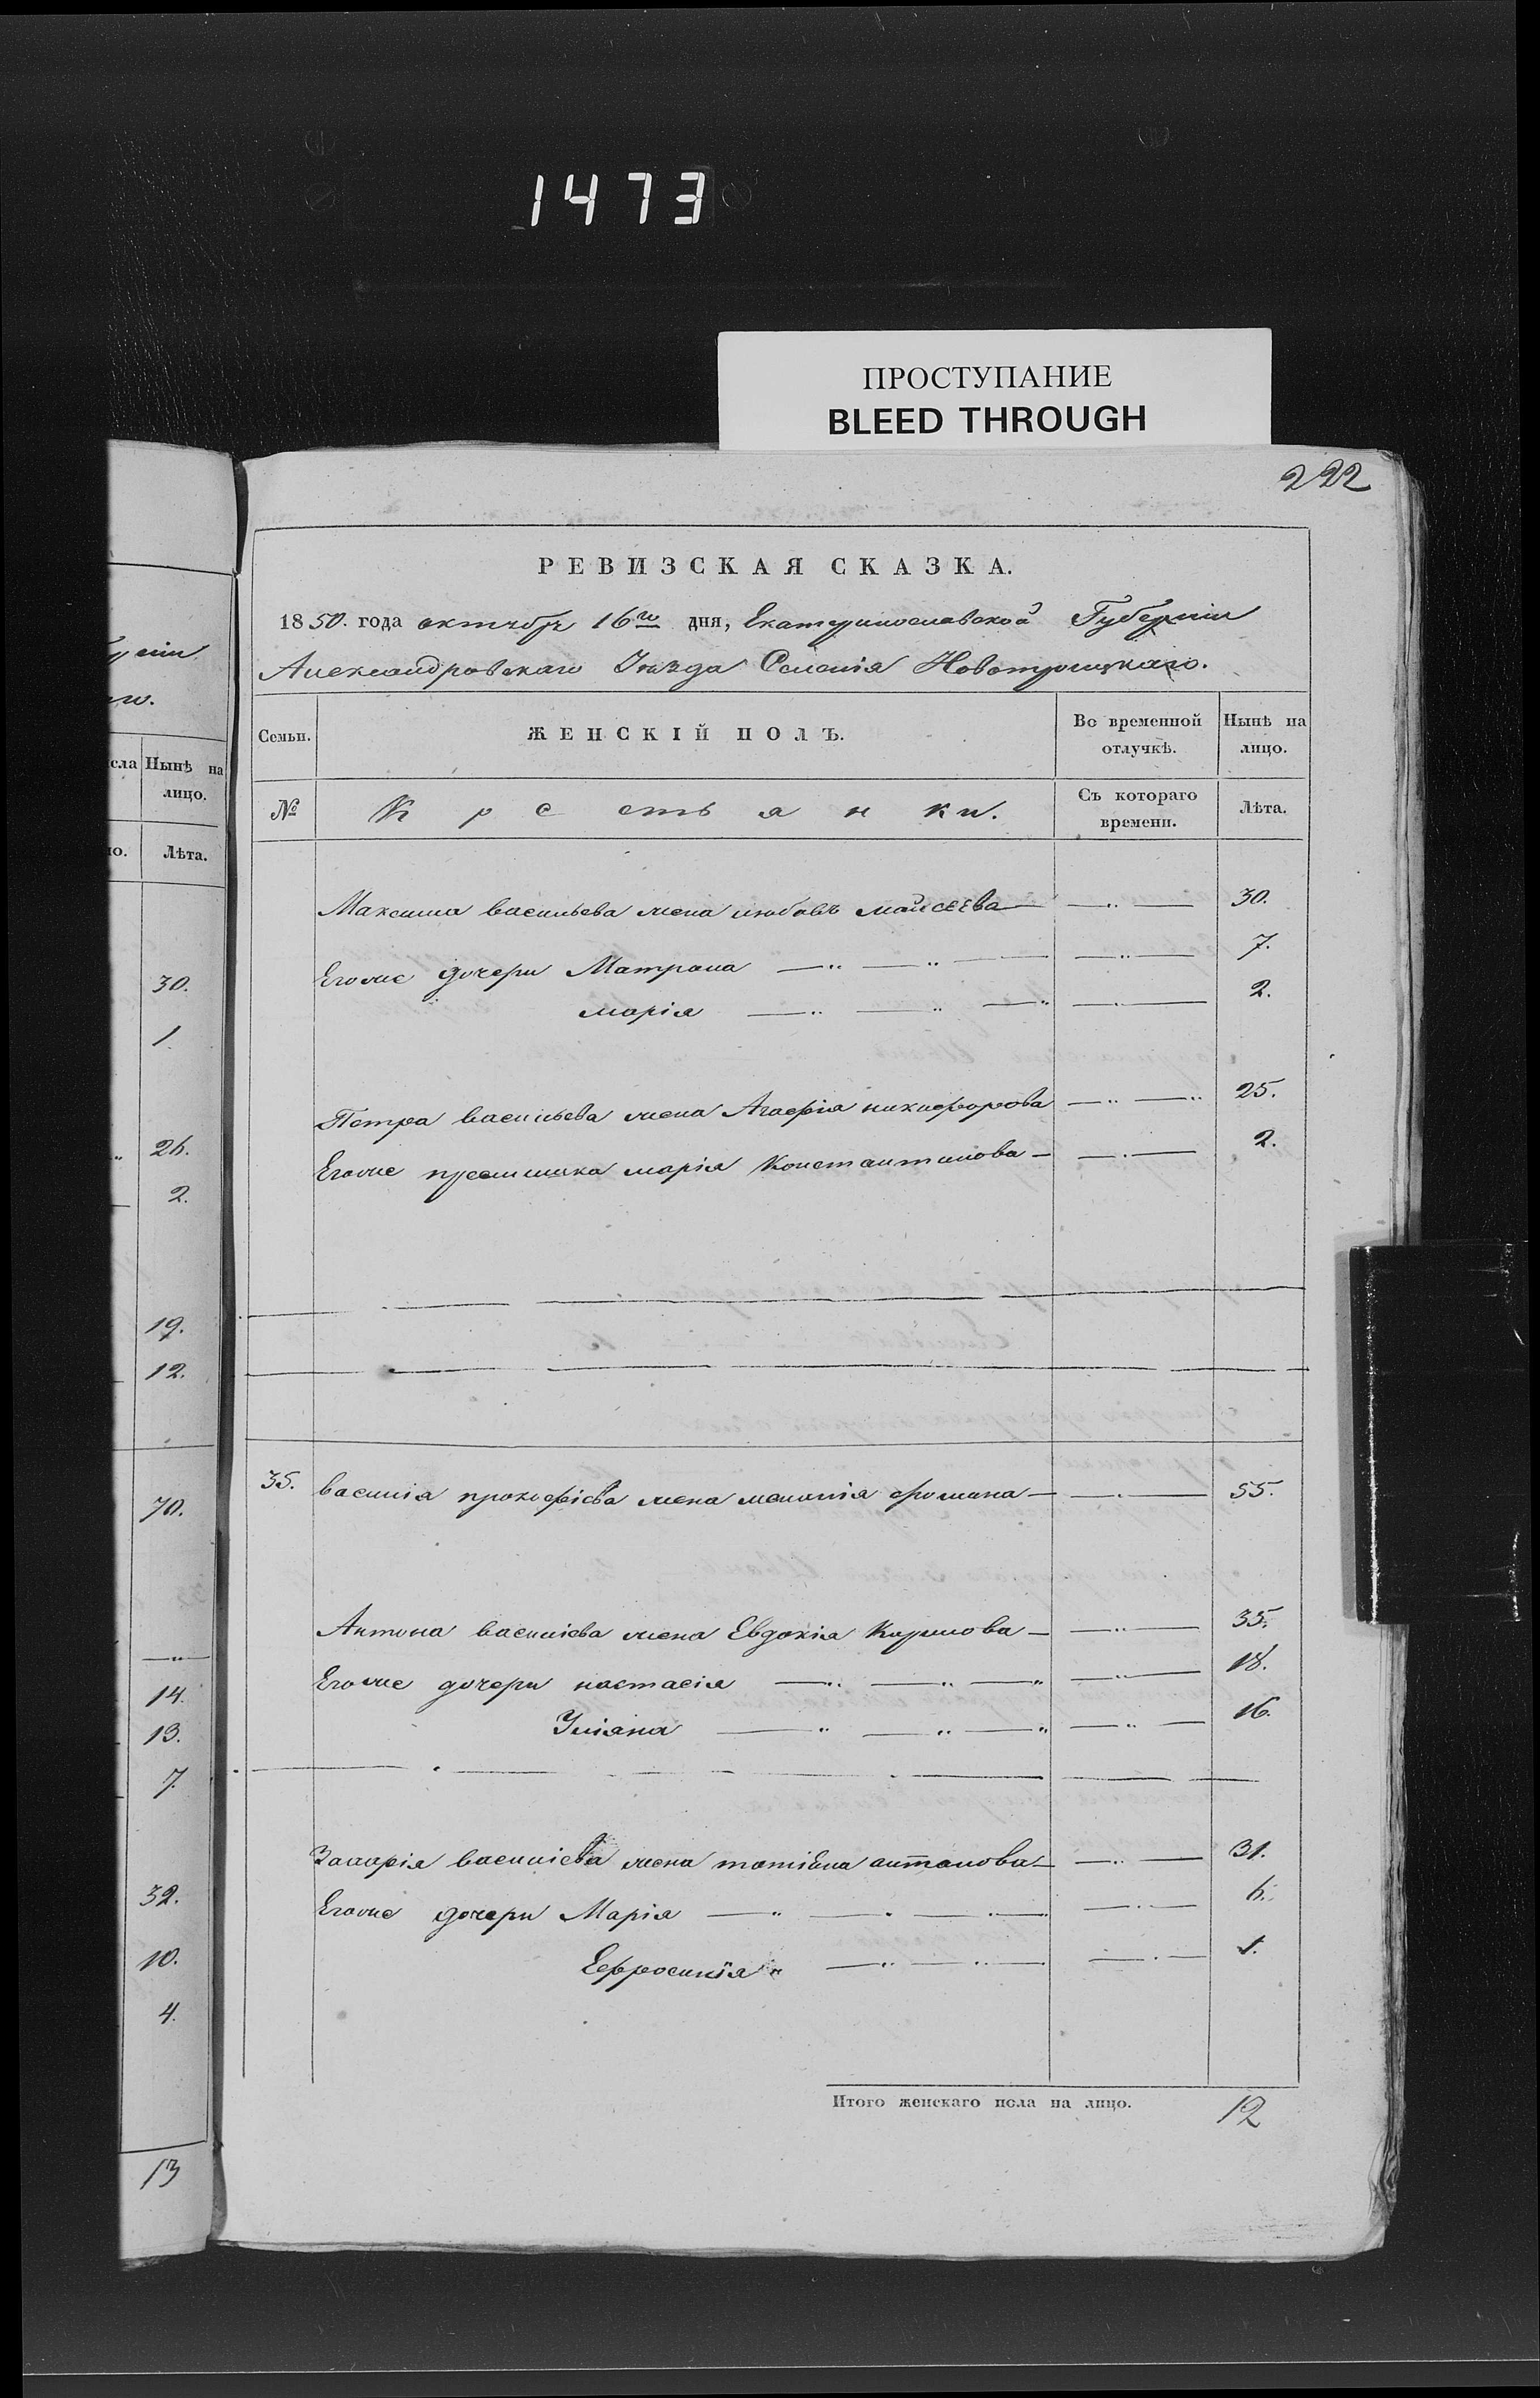 1473
ПРОСТУПАНИЕ
BLEED THROUGH
222
РЕВИЗСКАЯ СКАЗКА.
1850. года октября 16го дня, Екатеринославской Губерніи
Александровскаго Уѣзда Селенія Новотроицкаго.
Семьи. ЖЕНСКІЙ ПОЛЪ. Во временной отлучкѣ. Нынѣ на лицо.
№ Крестьянки. Съ котораго времени. Лѣта.
Максима васильева жена любовь мойсеева 30.
Егоже дочери Матрона 7.
марія 2.
Петра васильева жена Агафія никифорова 25.
Егоже племяница марія Константинова 2.
35. василія прокофіева жена меланія фомина 55.
Антона василіева жена Евдокія Карпова 35.
Егоже дочери настасія 18.
Уліяна 16.
Захарія василіева жена татіяна антонова 31.
Егоже дочери Марія 6.
Ефросинія 1.
Итого женскаго пола на лицо. 12
сла Нынѣ на
лицо.
Лѣта.
30.
1
26.
2.
19.
12.
70.
14.
13.
7.
32.
10.
4.
13